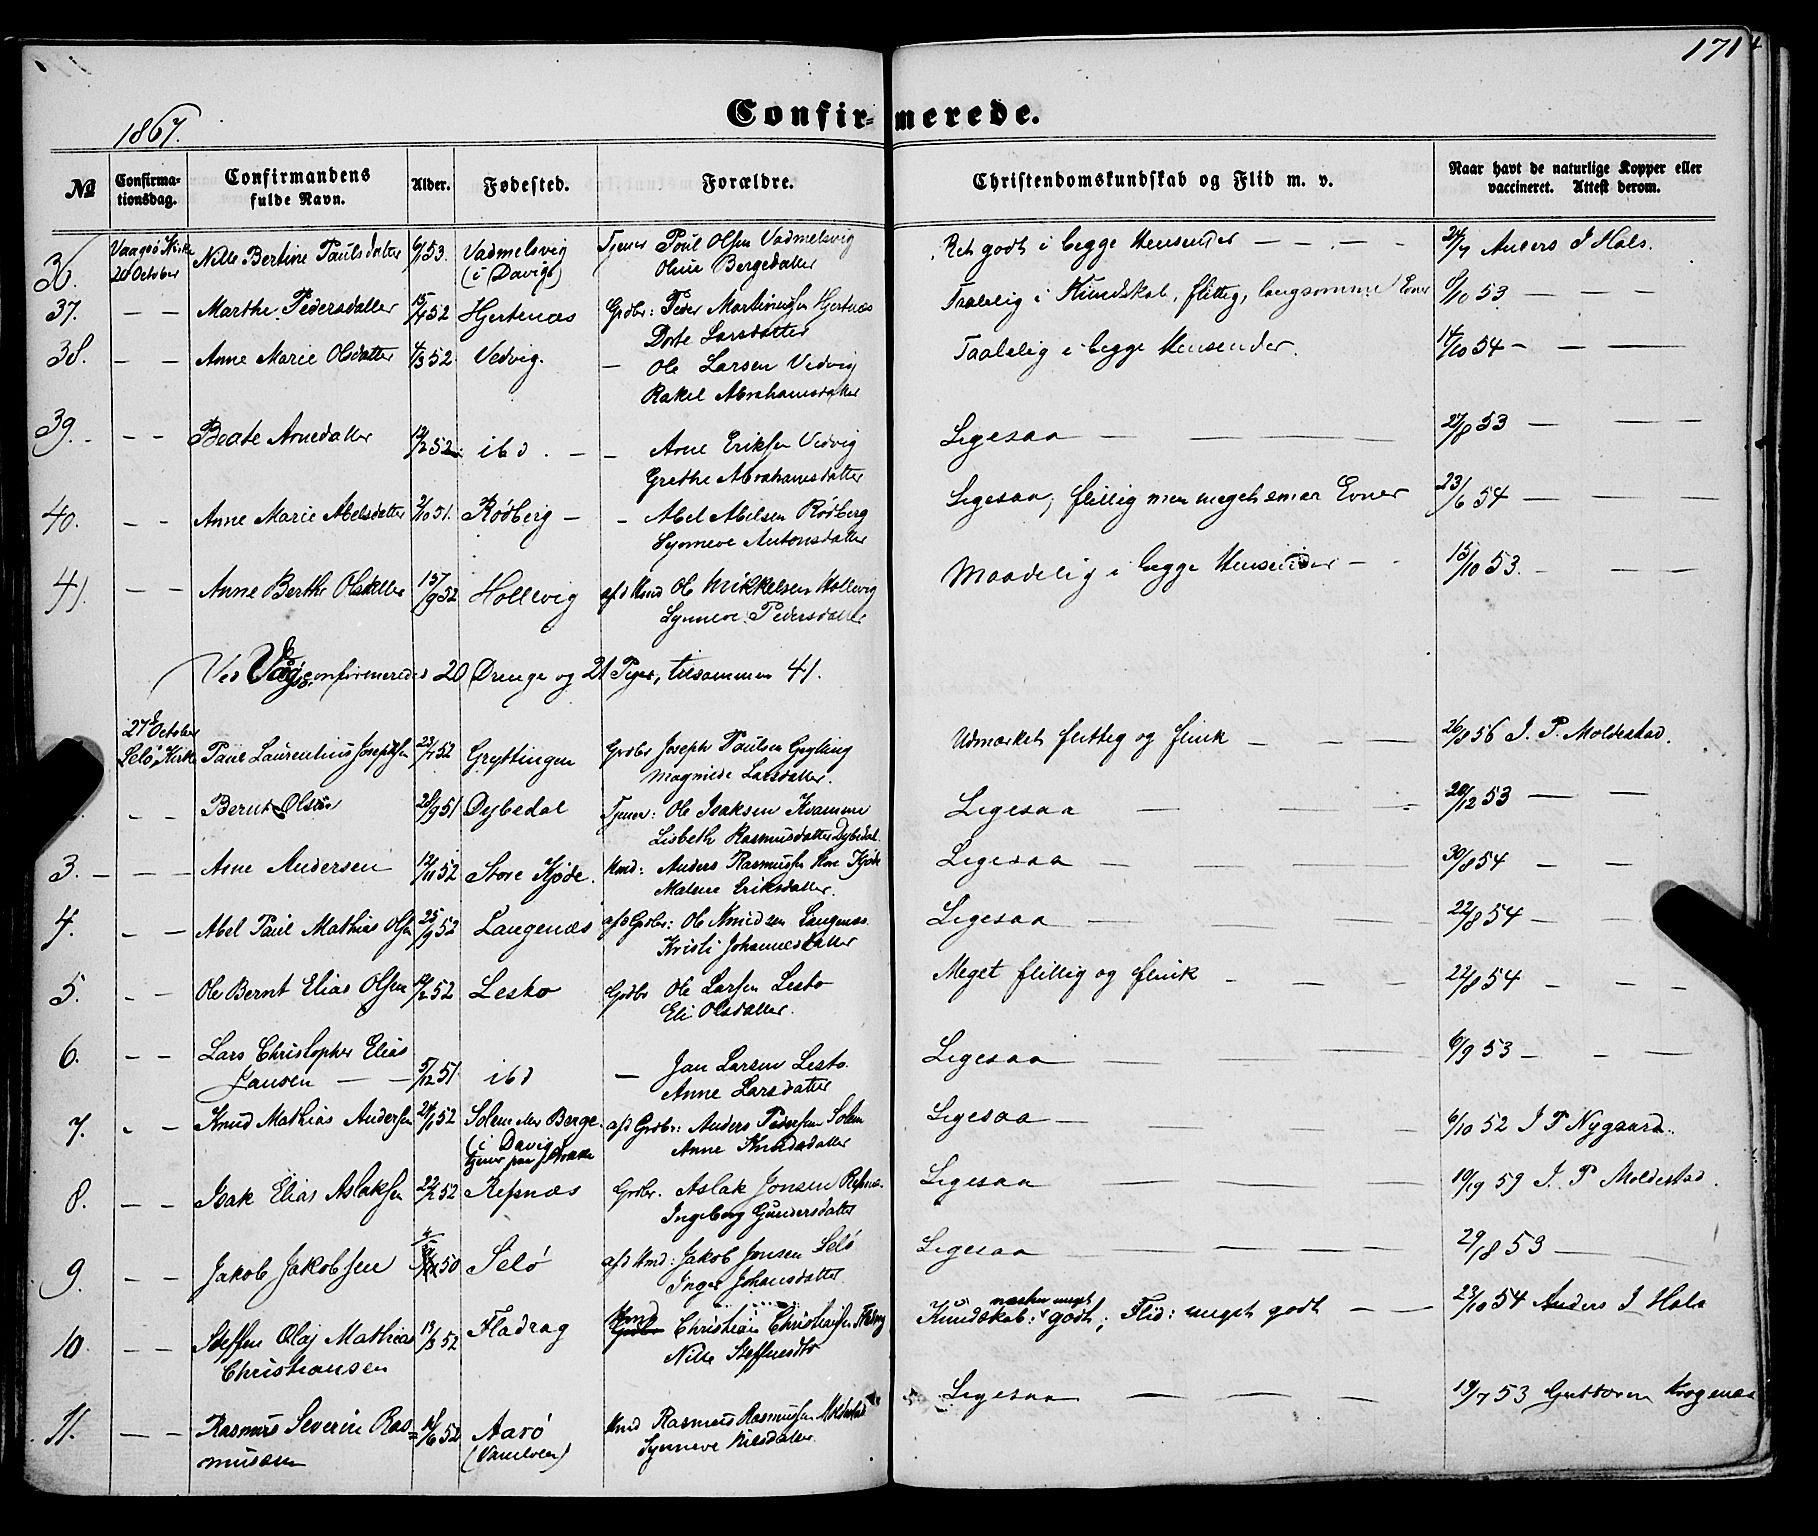 171
1867.
Confirmerede.
№
Confirma-
tionsdag.
Confirmandens
fulde Navn.
Alder.
Fødested.
Forældre.
Christendomskundskab og Flid m. v.
Naar havt de naturlige Kopper eller
vaccineret. Attest derom.
36. Vaagsö Kirke Nille Bertine Paulsdatter 6/1 53. Vadmelsvig Tjener Poul Olsen Vadmelsvig Ret godt i begge Hensender — — — 24/7 Anders J Hals.
20 October (i Davigs) Oline Bergedatter
37. — — Marthe Pedersdatter 15/4 52 Hjertenæs Grdbr: Peder Martinusen Hjertnæs Taalelig i Kundskab, flittig, langsomme Evner 6/10 53 — — —
Dorte Larsdatter
38. — — Anne Marie Olsdatter 4/3 52. Vedvig. — Ole Larsen Vedvig Taalelig i begge Hensender. 14/10 54 — — —
Rakel Abrahamsdatter
39. — — Beate Arnedatter 12/2 52 ibd. — — Arne Eriksen Vedvig Ligesaa — — — 27/8 53 — — —
Grethe Abrahamsdatter
40. — — Anne Marie Abelsdatter 2/10 51. Rödberg — — Abel Abelsen Rödberg Ligesaa, flittig men meget smaa Evner 23/6 54 — — —
Synneve Antonsdatter
41. — — Anne Berthe Olsdatter 15/9 52 Hollevig afd Hmd Ole Mikkelsen Hollevig Maadelig i begge Hensender — — 15/10 53. — — —
Synneve Pedersdatter
Ved Vågsö confirmeredes 20 Drenge og 21 Piger, tilsammen 41.
27de October
Selö Kirke Paul Laurentius Josephsen 23/7 52 Gryttingen Grdbr Joseph Paulsen Gryting Udmærket flittig og flink — — — 26/8 56 J. P. Moldestad.
Magnilde Larsdatter.
— — Bernt Olsen 28/9 51 Dybedal Tjener: Ole Isaksen Kvamme Ligesaa — — 20/12 53 — — —
Lisbeth Rasmusdatter Dybedal
3. — — — Arne Andersen 12/11 52 Store Hjøde. Hmd: Anders Rasmusen Ligesaa — — — 30/8 54 — —
Malene Eriksdatter.
4. — — Abel Paul Mathias Olsen 25/9 52 Langenæs afd Grdbr: Ole Knudsen Langenæs. Ligesaa — — — 22/8 54 — —
Kristi Johannesdatter
5. — — Ole Bernt Elias Olsen 52 Lesto Grdbr Ole Larsen Lesto Meget flittig og flink — — — 22/8 54 — — —
Eli Olsdatter.
6. — — Lars Christopher Elias
Jansen — — 5/12 51 ibd — Jan Larsen Lesto. Ligesaa — — — 6/9 53 — — —
Anne Larsdatter
7. — — Knud Mathias Andersen 24/1 52 Solem eller Berge. afd Grdbr: Anders Pedersen Solem Ligesaa — — — 6/10 52 J P Nygaard.
(i Davig) Anne Knudsdatter
tjener paa
8. — — Isak Elias Aslaksen 22/2 52 Refsnæs Grdbr. Aslak Jonsen Refsnæs Ligesaa — — — 59 J. P Moldestad.
Ingeborg Gundersdatter
9. — — Jakob Jakobsen 50 Selö afd Hmd: Jakob Jonsen Selö Ligesaa — — — 29/8 53 — —
Inger Johansdatter
10. — — Steffen Olaj Mathias 13/3 52 Fladrag Hmd Christian Christiansen Kundskab: næsten meget godt; Flid: meget godt — — 23/10 54 Anders J Hals
Christiansen Nille Steffensdtr
11. — — Rasmus Severin Ras= 52 Aarö Hmd Rasmus Rasmusen Moldestad Ligesaa — — — 19/7 53 Guttorm Krogenæs
musen (Vanelven) Synneve Nilsdatter